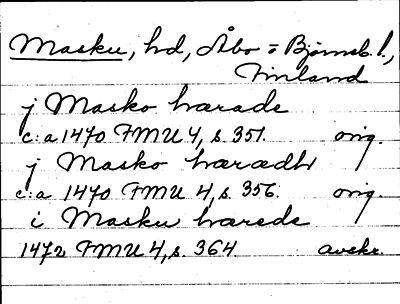 Masku, hd, Åbo = Björneb. l.,
Finland
j Masko hærade
c:a 1470 FMU 4, s. 351. orig.
j Masko hærædh
c:a 1470 FMU 4, s. 356. orig.
i Masku hærede
1472 FMU 4, s. 364. avskr.